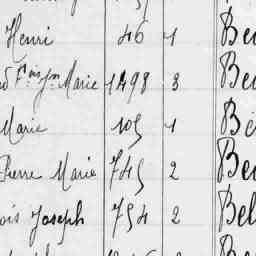 Henri 46 1 Be
Fois Jn Marie 1498 3 Be
Marie 105 1 Be
Pierre Marie 745 2 Be
ois Joseph 754 2 Bel